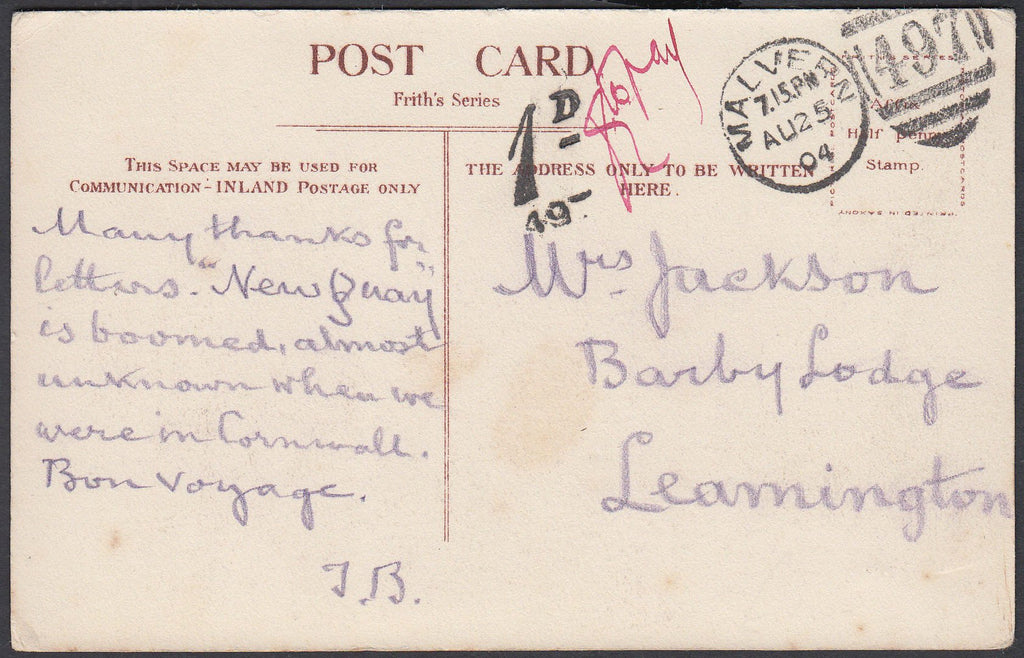 POST CARD
Frith's Series
THIS SPACE MAY BE USED FOR
COMMUNICATION - INLAND POSTAGE ONLY
THE ADDRESS ONLY TO BE WRITTEN
HERE.
Affix
Half penny
Stamp.
PRINTED IN SAXONY
MALVERN
7.15.PM
AU 25
04
497
1D
49
to pay
Many thanks for
letters. "New Quay"
is boomed, almost
unknown when we
were in Cornwall.
Bon voyage.
J.B.
Mrs. Jackson
Barby Lodge
Leamington